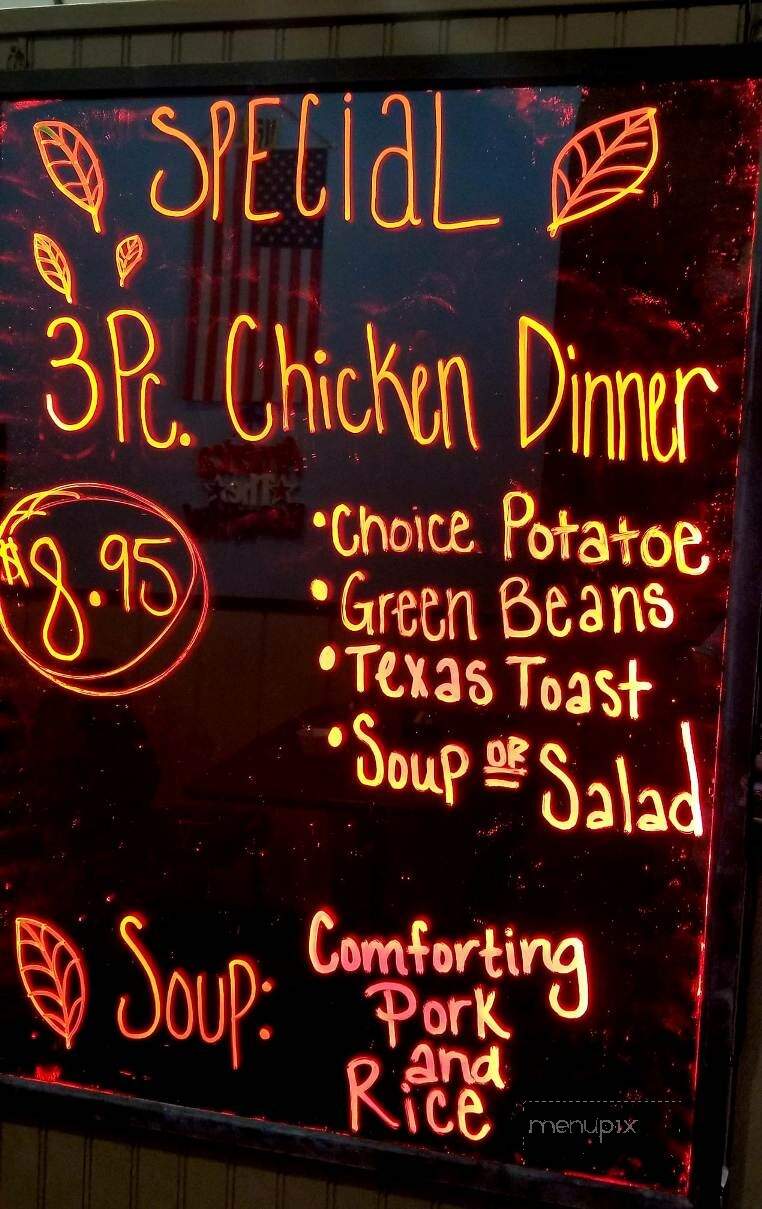 SPECiaL
3 Pc. Chicken Dinner
$8.95
•Choice Potatoe
•Green Beans
•Texas Toast
•Soup OR Salad
Soup: Comforting
Pork
and
Rice
menupix